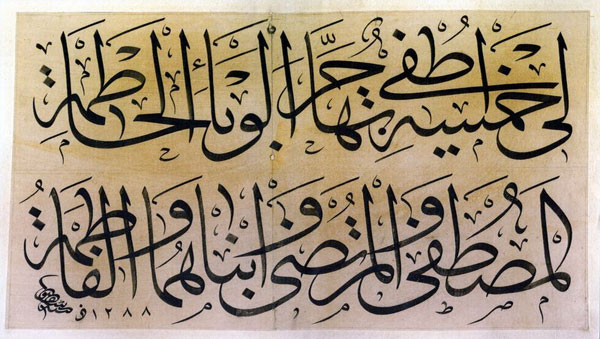 لي خمسة اطفي بها حر الوباء الحاطمة
المصطفى والمرتضى وابناهما والفاطمة
١٢٨٨